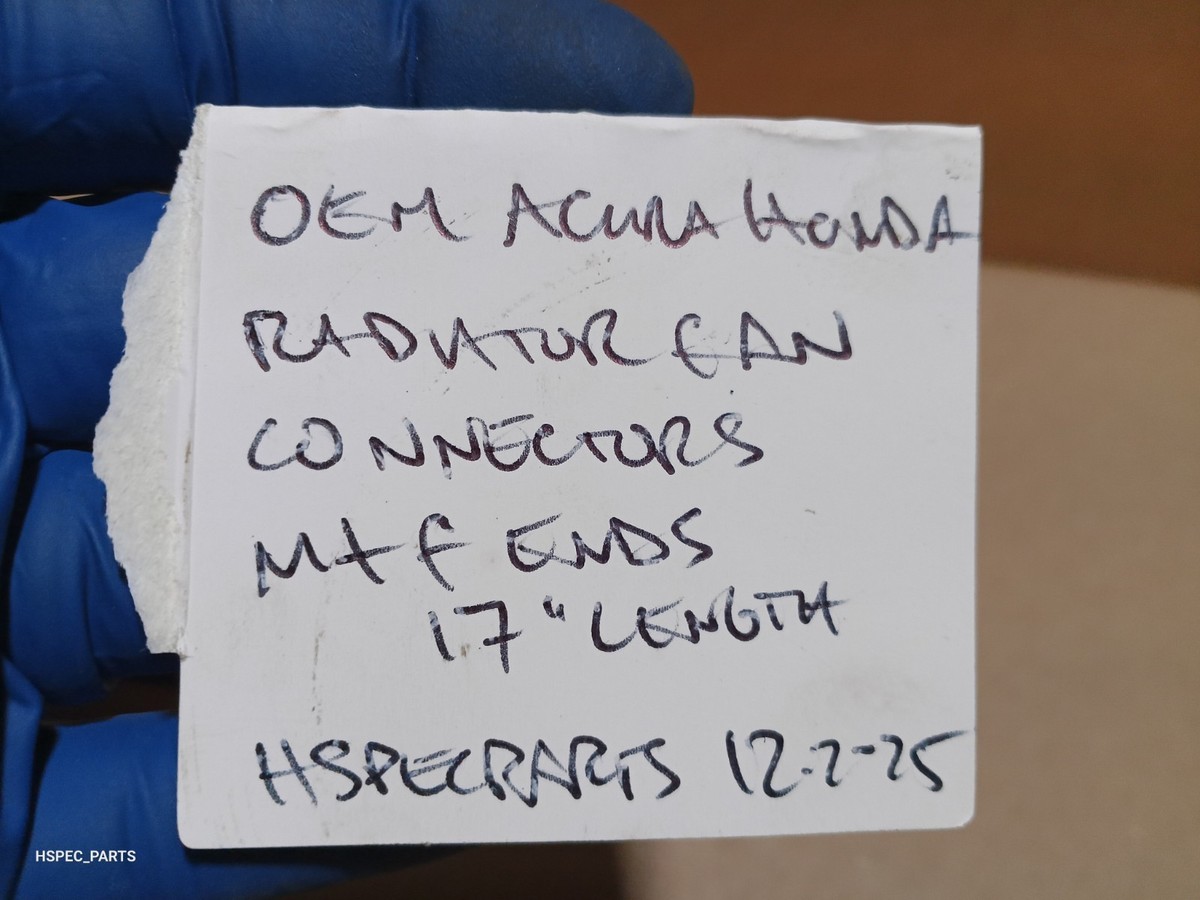 OEM ACURA HONDA
RADIATOR FAN
CONNECTORS
M+F ENDS
17" LENGTH
HSPECPARTS 12-7-25
HSPEC_PARTS